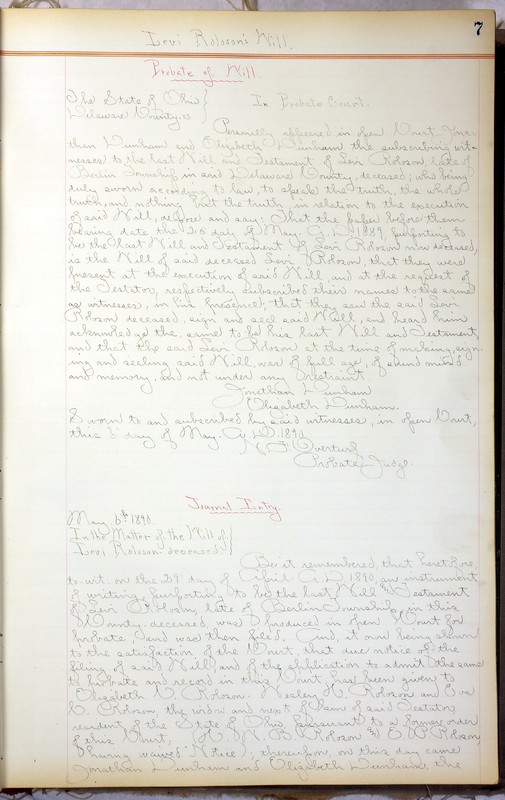 7
Levi Roloson's Will.
Probate of Will
The State of Ohio }
Delaware County, ss } In Probate Court.
Personally appeared in open Court Jona-
than Dunham and Elizabeth Dunham the subscribing wit-
nesses to the last Will and Testament of Levi Roloson late of
Berlin Township in said Delaware County, deceased; who being
duly sworn according to law, to speak the truth, the whole
truth, and nothing but the truth, in relation to the execution
of said Will, depose and say: That the paper before them
bearing date the 26 day of May. A.D. 1889, purporting to
be the last Will and Testament of Levi Roloson now deceased,
is the Will of said deceased Levi Roloson, that they were
present at the execution of said Will, and at the request of
the Testator, respectively subscribed their names to the same
as witnesses, in his presence; that they saw the said Levi
Roloson deceased, sign and seal said Will, and heard him
acknowledge the same to be his last Will and Testament,
and that the said Levi Roloson at the time of making, sign-
ing and sealing said Will, was of full age, of sound mind
and memory, and not under any restraint.
Jonathan Dunham
Elizabeth Dunham.
Sworn to and subscribed by said witnesses, in open Court,
this day of May. A.D. 1890
Overturf
Probate Judge.
Journal Entry.
May 6th 1890.
In the Matter of the Will of }
Levi Roloson deceased. }
Be it remembered, that heretofore,
to-wit: on the 29 day of April A.D. 1890, an instrument
of writing, purporting to be the last Will and Testament
of Levi Roloson, late of Berlin Township, in this
County deceased, was produced in open Court for
probate and was then filed. And, it now being shown
to the satisfaction of the Court, that due notice of the
filing of said Will, and of the application to admit the same
to probate and record in this Court has been given to
Elizabeth Roloson. Wesley H. Roloson and Eva
Roloson, the widow and next of kin of said Testator,
resident of the State of Ohio, pursuant to a former order
of this Court, Roloson and Roloson
having waived Notice), thereupon, on this day came
Jonathan Dunham and Elizabeth Dunham, the